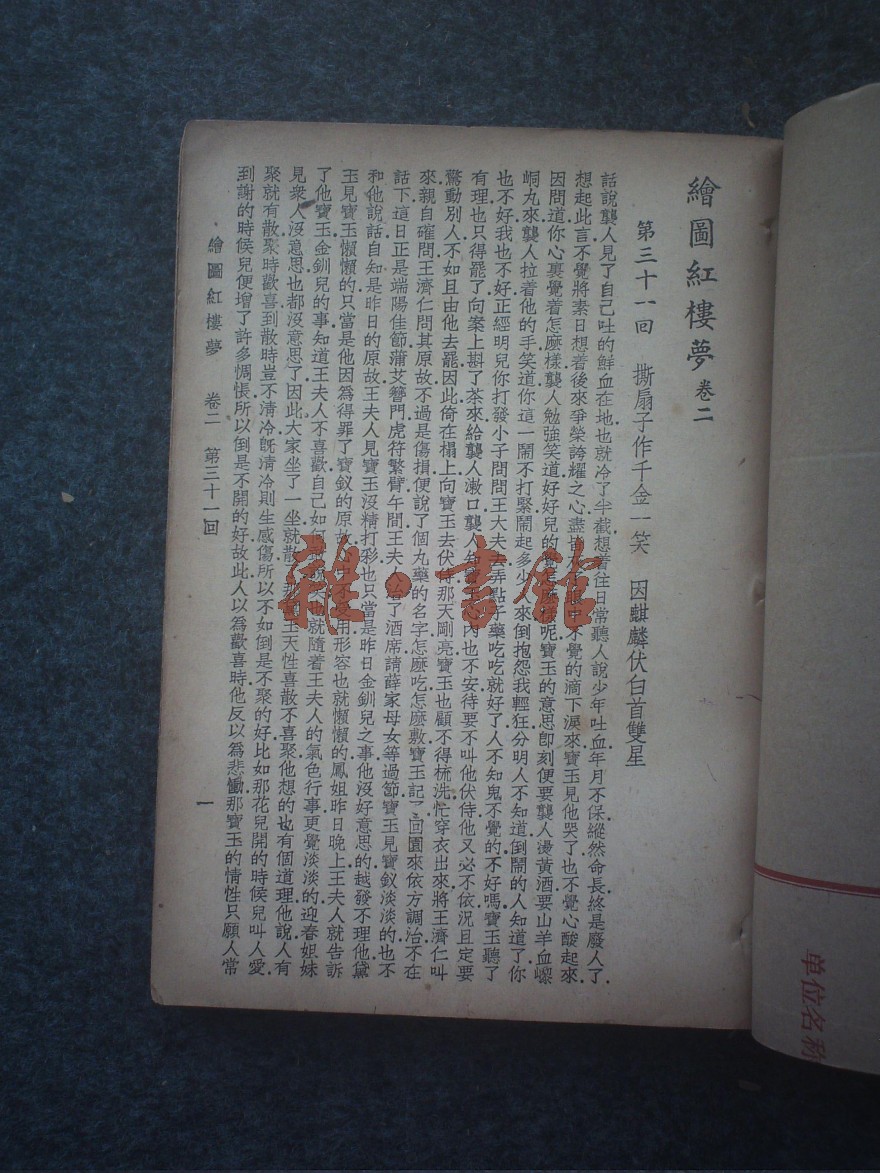 繪圖紅樓夢 卷二
第三十一回 撕扇子作千金一笑 因麒麟伏白首雙星
話說襲人見了自己吐的鮮血在地也就冷了半截想着往日常聽人說少年吐血年月不保縱然命長終是廢人了
想起此言不覺將素日想着後來爭榮誇耀之心盡皆 中不覺的滴下淚來寶玉見他哭了也不覺心酸起來
因問道你心裏覺着怎麽樣襲人勉強笑道好好兒的 呢寶玉的意思卽刻便要襲人燙黃酒要山羊血㠍
峒丸來襲人拉着他的手笑道你這一鬧不打緊鬧起多少 來倒抱怨我輕狂分明人不知道倒鬧的人知道了你
也不好我也不好正經明兒你打發小子問問王大夫去弄點子藥吃吃就好了人不知鬼不覺的不好嗎寶玉聽了
有理也只得罷了向案上斟了茶來給襲人漱口襲人知寶 心內也不安待要不叫他伏侍他又必不依況且定要
驚動別人不如且由他去罷因此倚在榻上向寶玉去伏侍那天剛亮寶玉也顧不得梳洗忙穿衣出來將王濟仁叫
來親自確問王濟仁問其原故不過是傷損便說了個丸藥的名字怎麽吃怎麽敷寶玉記了回園來依方調治不在
話下這日正是端陽佳節蒲艾簪門虎符繫臂午間王夫人治了酒席請薛家母女等過節寶玉見寶釵淡淡的也不
和他說話自知是昨日的原故王夫人見寶玉沒精打彩也只當是昨日金釧兒之事他沒好意思的越發不理他黛
玉見寶玉懶懶的只當是他因爲得罪了寶釵的原故 用形容也就懶懶的鳳姐昨日晚上王夫人就告訴
了他寶玉金釧兒的事知道王夫人不喜歡自己如何 也就隨着王夫人的氣色行事更覺淡淡的迎春姐妹
見衆人沒意思也都沒意思了因此大家坐了一坐就散 那 玉天性喜散不喜聚他想的也有個道理他說人有
聚就有散聚時歡喜到散時豈不清冷旣淸冷則生感傷所以不如倒是不聚的好比如那花兒開的時候兒叫人愛
到謝的時候兒便增了許多惆悵所以倒是不開的好故此人以爲歡喜時他反以爲悲慟那寶玉的情性只願人常
繪圖紅樓夢 卷二 第三十一回 一
雜·書館
单位名称